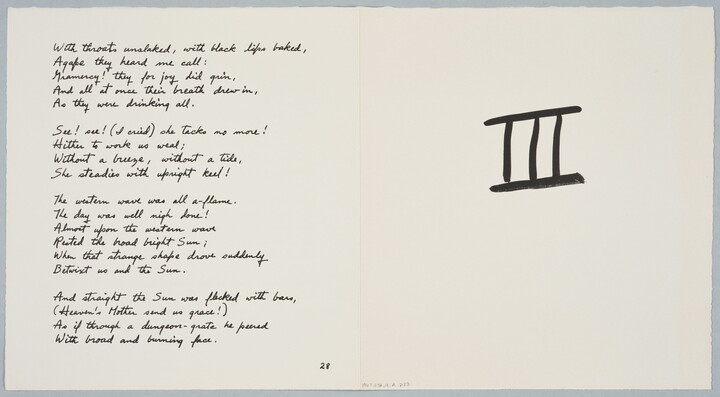 With throats unslaked, with black lips baked,
Agape they heard me call:
Gramercy! they for joy did grin,
And all at once their breath drew in,
As they were drinking all.
See! see! (I cried) she tacks no more!
Hither to work us weal;
Without a breeze, without a tide,
She steadies with upright keel!
The western wave was all a-flame.
The day was well nigh done!
Almost upon the western wave
Rested the broad bright Sun;
When that strange shape drove suddenly
Betwixt us and the Sun.
And straight the Sun was flecked with bars,
(Heaven's Mother send us grace!)
As if through a dungeon-grate he peered
With broad and burning face.
28
III